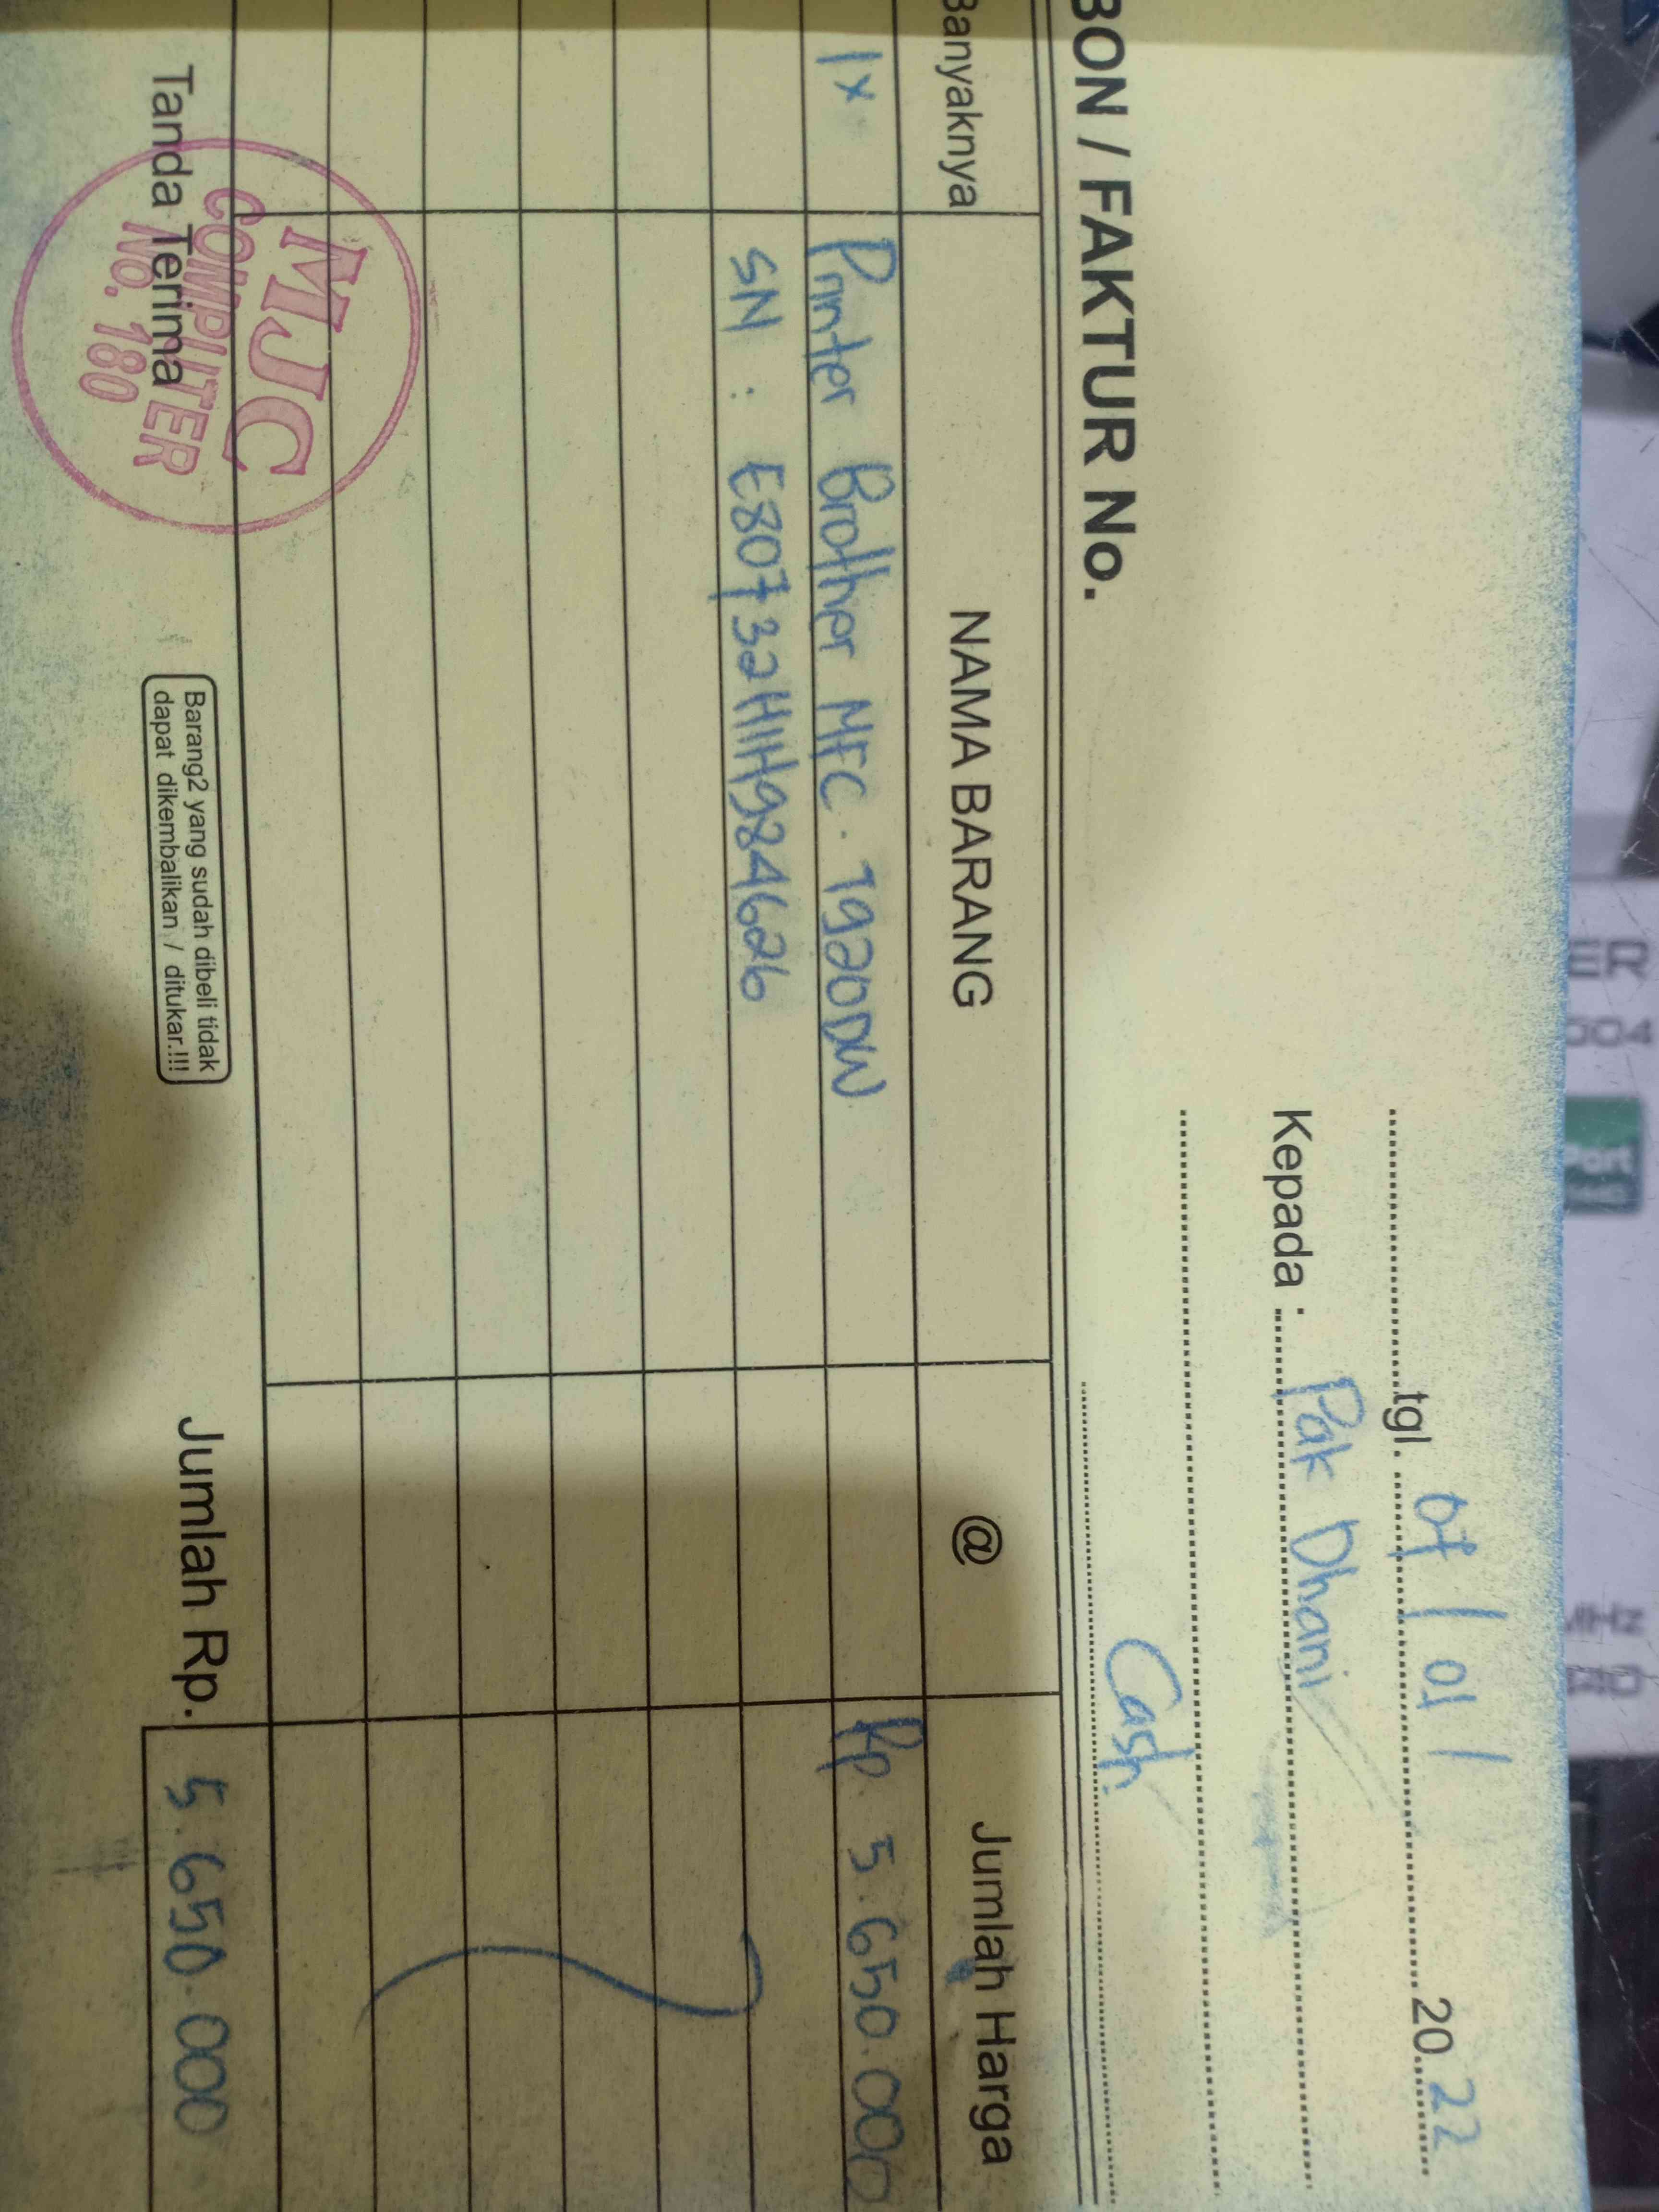 tgl. 07 / 01 / 2022
Kepada : Pak Dhani
Cash
BON / FAKTUR No.
Banyaknya NAMA BARANG @ Jumlah Harga
1x Printer Brother MFC. T920DW Rp 5.650.000
SN : E80732H1H984626
Tanda Terima
MJC
COMPUTER
No. 180
Barang2 yang sudah dibeli tidak
dapat dikembalikan / ditukar.!!!
Jumlah Rp. 5.650.000
ER
004
Port
MHz